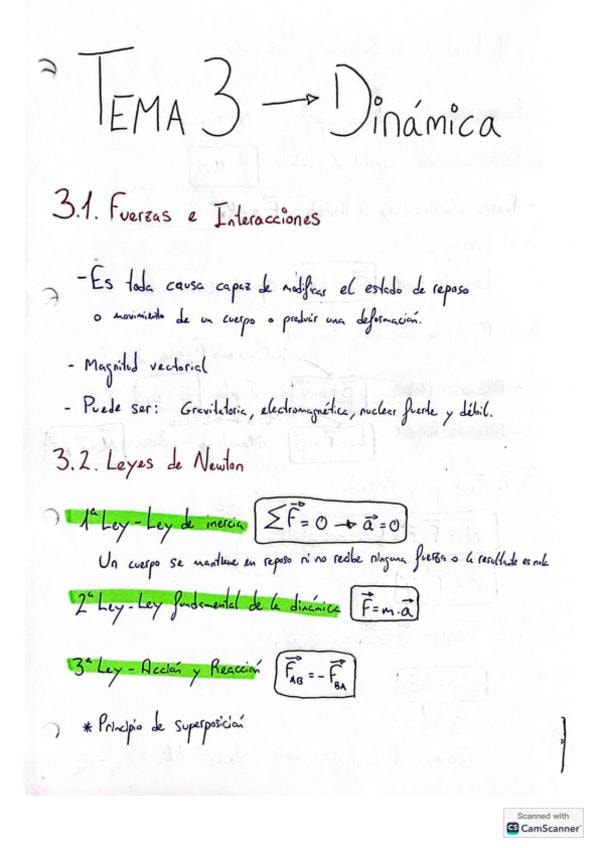 TEMA 3 → Dinámica
3.1. Fuerzas e Interacciones
- Es toda causa capaz de modificar el estado de reposo
o movimiento de un cuerpo o producir una deformación.
- Magnitud vectorial
- Puede ser: Gravitatoria, electromagnética, nuclear fuerte y débil.
3.2. Leyes de Newton
1ª Ley - Ley de inercia ΣF⃗ = 0 → a⃗ = 0
Un cuerpo se mantiene en reposo si no recibe ninguna fuerza o la resultante es nula
2ª Ley - Ley fundamental de la dinámica F⃗ = m · a⃗
3ª Ley - Acción y Reacción F⃗AB = - F⃗BA
* Principio de superposición
Scanned with
CS CamScanner